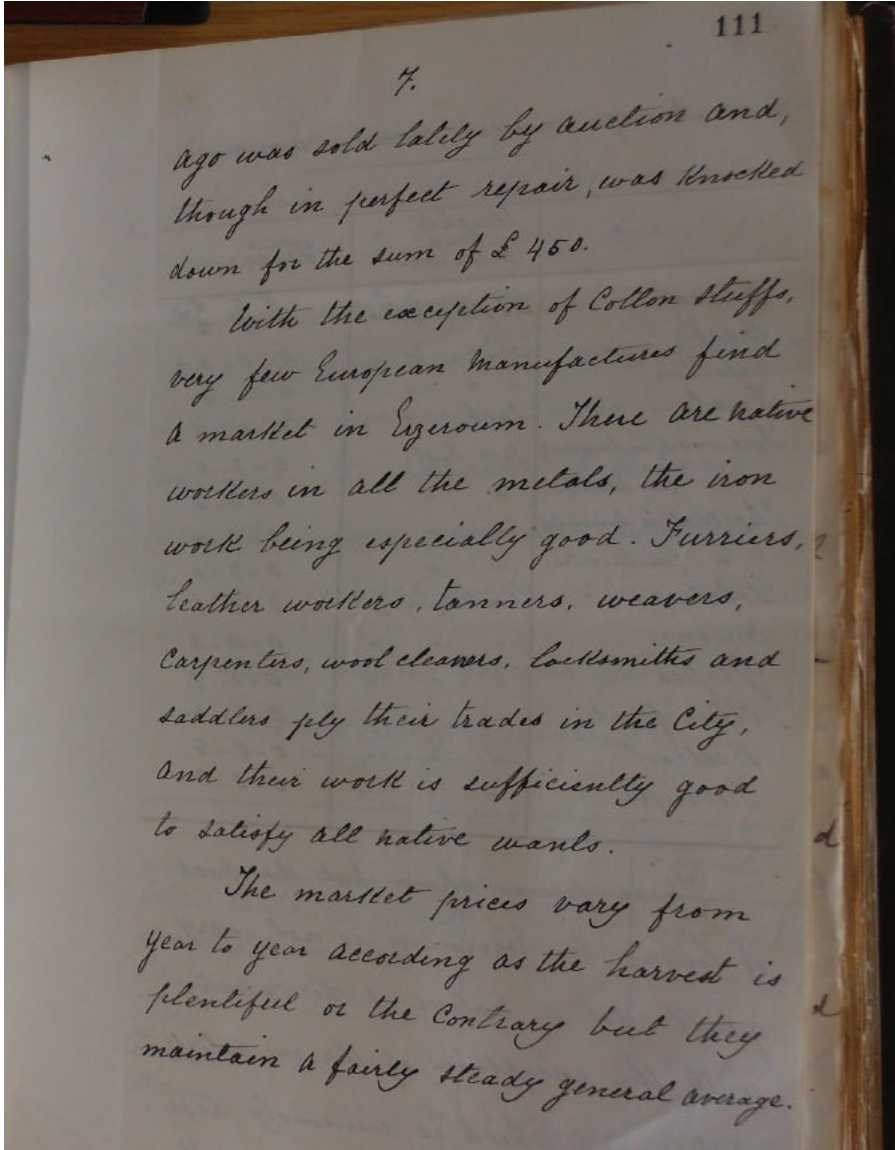 111
7.
ago was sold lately by auction and,
though in perfect repair, was knocked
down for the sum of £ 450.
With the exception of Cotton stuffs,
very few European Manufactures find
a market in Erzeroum. There are native
workers in all the metals, the iron
work being especially good. Furriers,
leather workers, tanners, weavers,
Carpenters, wool cleaners, locksmiths and
saddlers ply their trades in the City,
and their work is sufficiently good
to satisfy all native wants.
The market prices vary from
year to year according as the harvest is
plentiful or the Contrary but they
maintain a fairly steady general average.
d
d